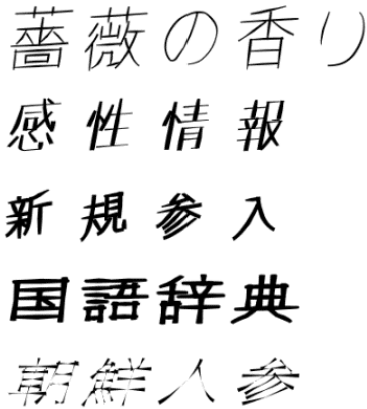 薔薇の香り
感性情報
新規参入
国語辞典
朝鮮人参